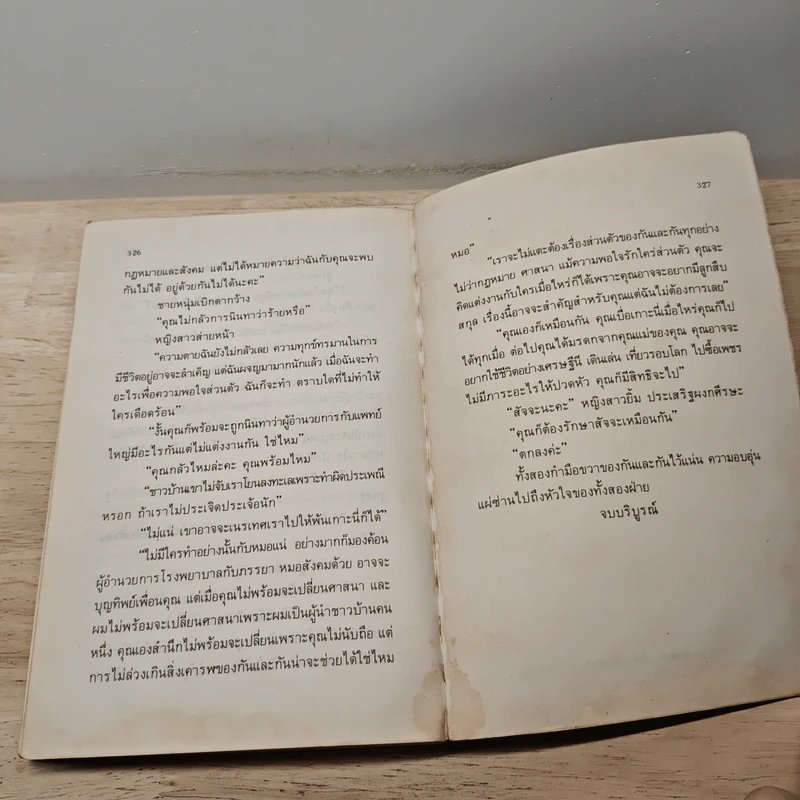 326
กฎหมายและสังคม แต่ไม่ได้หมายความว่าฉันกับคุณจะพบ
กันไม่ได้ อยู่ด้วยกันไม่ได้นะคะ”
ชายหนุ่มเบิกตากว้าง
“คุณไม่กลัวการนินทาว่าร้ายหรือ”
หญิงสาวส่ายหน้า
“ความตายฉันยังไม่กลัวเลย ความทุกข์ทรมานในการ
มีชีวิตอยู่อาจจะลำเค็ญ แต่ฉันผจญมามากนักแล้ว เมื่อฉันจะทำ
อะไรเพื่อความพอใจส่วนตัว ฉันก็จะทำ ตราบใดที่ไม่ทำให้
ใครเดือดร้อน”
“งั้นคุณก็พร้อมจะถูกนินทาว่าผู้อำนวยการกับแพทย์
ใหญ่มีอะไรกันแต่ไม่แต่งงานกัน ใช่ไหม”
“คุณกลัวไหมล่ะคะ คุณพร้อมไหม”
“ชาวบ้านเขาไม่จับเราโยนลงทะเลเพราะทำผิดประเพณี
หรอก ถ้าเราไม่ประเจิดประเจ้อนัก”
“ไม่แน่ เขาอาจจะเนรเทศเราไปให้พ้นเกาะนี้ก็ได้”
“ไม่มีใครทำอย่างนั้นกับหมอแน่ อย่างมากก็มองค้อน
ผู้อำนวยการโรงพยาบาลกับภรรยา หมอสังคมด้วย อาจจะ
บุญทิพย์เพื่อนคุณ แต่เมื่อคุณไม่พร้อมจะเปลี่ยนศาสนา และ
ผมไม่พร้อมจะเปลี่ยนศาสนาเพราะผมเป็นผู้นำชาวบ้านคน
หนึ่ง คุณเองสำนึกไม่พร้อมจะเปลี่ยนเพราะคุณไม่นับถือ แต่
การไม่ล่วงเกินสิ่งเคารพของกันและกันน่าจะช่วยได้ใช่ไหม
327
หมอ”
“เราจะไม่แตะต้องเรื่องส่วนตัวของกันและกันทุกอย่าง
ไม่ว่ากฎหมาย ศาสนา แม้ความพอใจรักใคร่ส่วนตัว คุณจะ
คิดแต่งงานกับใครเมื่อไหร่ก็ได้เพราะคุณอาจจะอยากมีลูกสืบ
สกุล เรื่องนี้อาจจะสำคัญสำหรับคุณแต่ฉันไม่ต้องการเลย”
“คุณเองก็เหมือนกัน คุณเบื่อเกาะนี้เมื่อไหร่คุณก็ไป
ได้ทุกเมื่อ ต่อไปคุณได้มรดกจากคุณแม่ของคุณ คุณอาจจะ
อยากใช้ชีวิตอย่างเศรษฐีนี เดินเล่น เที่ยวรอบโลก ไปซื้อเพชร
ไม่มีภาระอะไรให้ปวดหัว คุณก็มีสิทธิจะไป”
“สัจจะนะคะ” หญิงสาวยิ้ม ประเสริฐผงกศีรษะ
“คุณก็ต้องรักษาสัจจะเหมือนกัน”
“ตกลงค่ะ”
ทั้งสองกำมือขวาของกันและกันไว้แน่น ความอบอุ่น
แผ่ซ่านไปถึงหัวใจของทั้งสองฝ่าย
จบบริบูรณ์